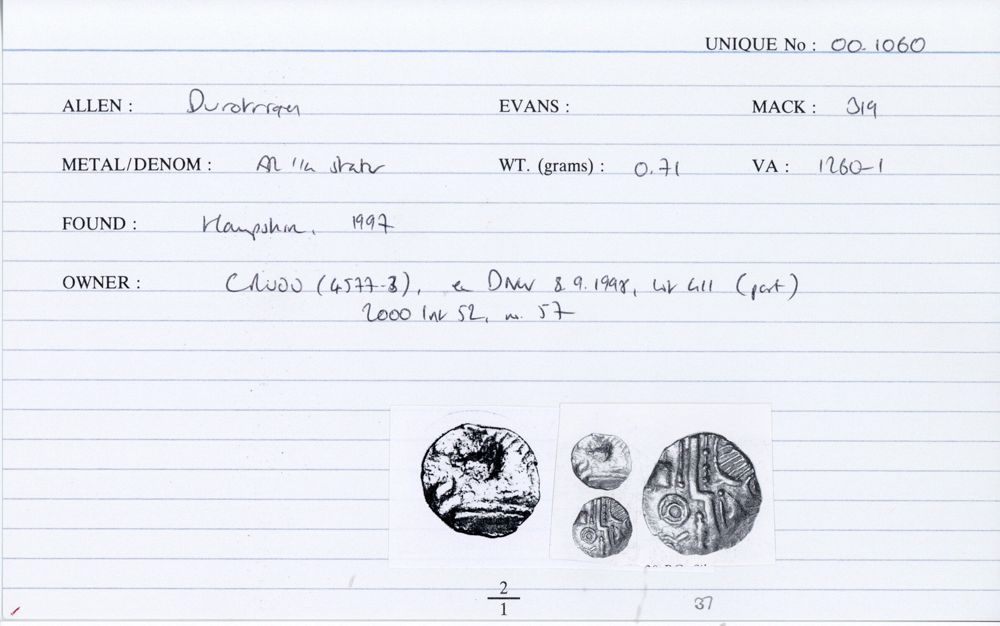 UNIQUE No : 00.1060
ALLEN : Durotrigan EVANS : MACK : 319
METAL/DENOM : AR 1/4 stater WT. (grams) : 0.71 VA : 1260-1
FOUND : Hampshire, 1997
OWNER : (4577-3), ex DNW 8.9.1998, lot 411 (part)
2000 Inv 52, no. 57
2
1
37